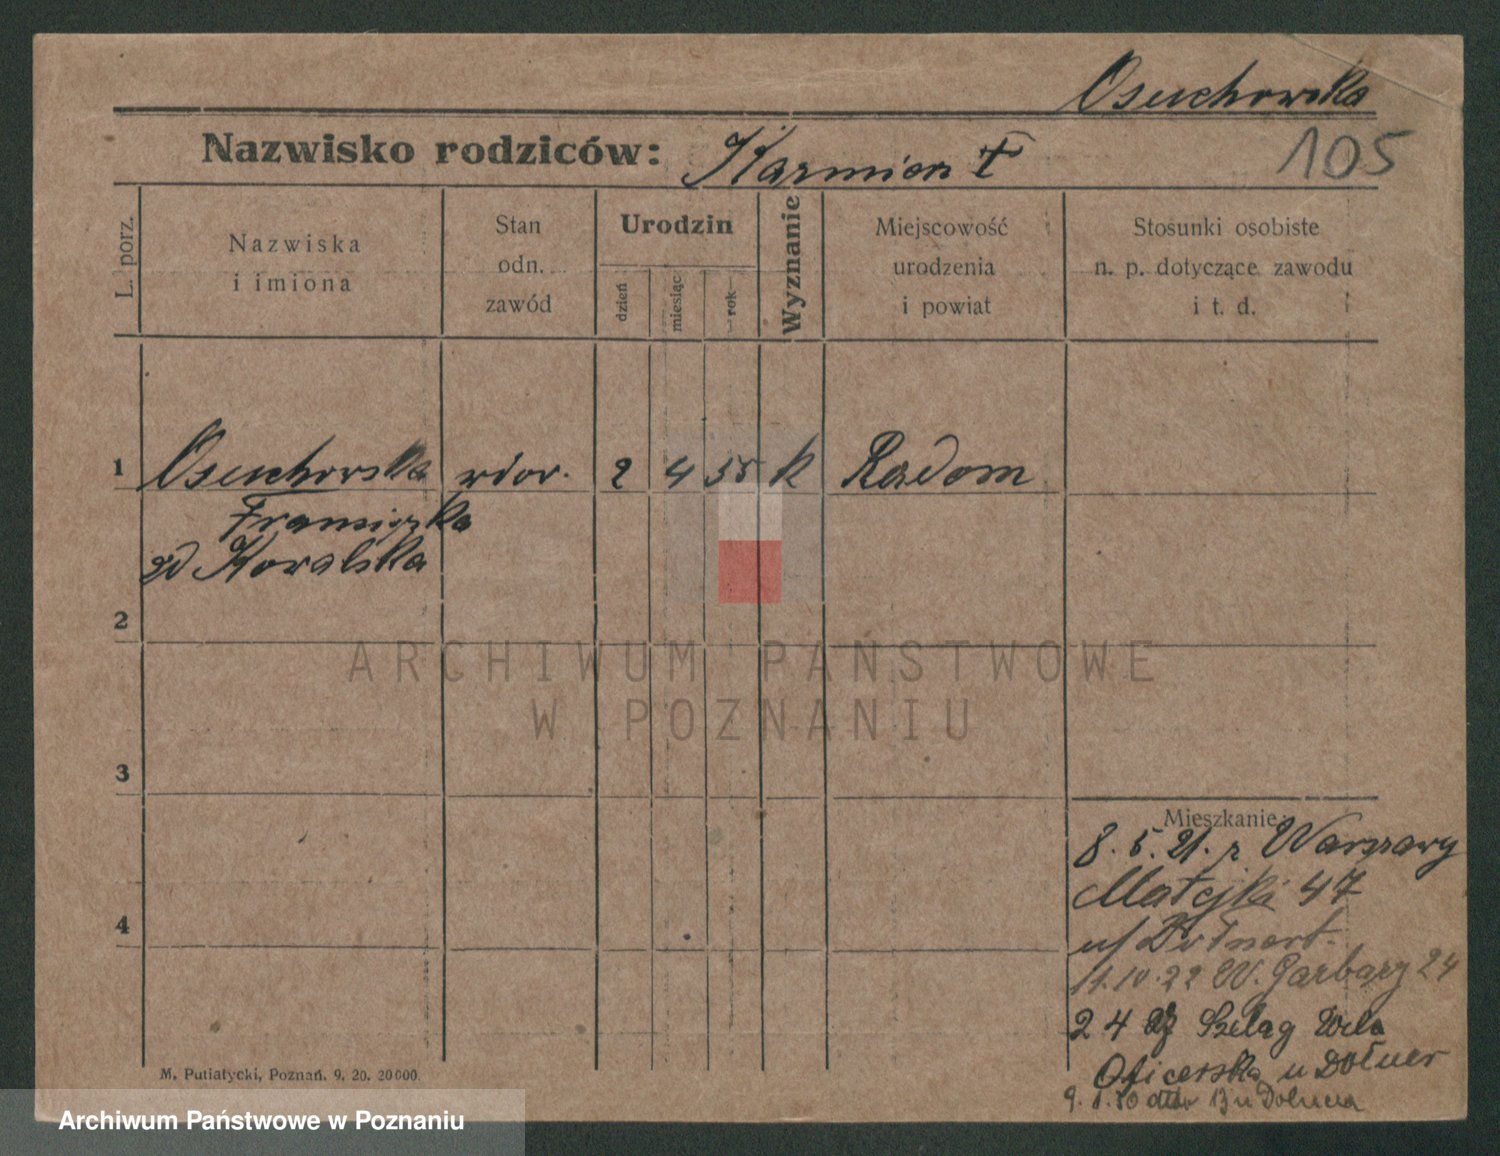 Osuchowska
Nazwisko rodziców: Kazmierz †
105
L. porz.
Nazwiska
i imiona
Stan
odn.
zawód
Urodzin
dzień
miesiąc
rok
Wyznanie
Miejscowość
urodzenia
i powiat
Stosunki osobiste
n. p. dotyczące zawodu
i t. d.
1 Osuchowska wdow. 2 4 55 k Radom
Franciszka
zd Kowalska
2
ARCHIWUM PAŃSTWOWE
W POZNANIU
3
Mieszkanie:
8. 5. 21. z Warszawy
Matejki 47
4
11.IV.22 W. Garbary 24
2 4 Szeląg Wila
Oficerska u Dołner
9. 1. 30 13 u
M. Putiatycki, Poznań. 9. 20. 20000.
Archiwum Państwowe w Poznaniu